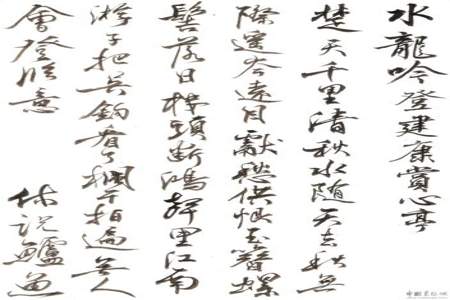 水龍吟登建康賞心亭
楚天千里清秋水随天去秋無
際遥岑遠目獻愁供恨玉簪螺
髻落日楼頭断鴻聲里江南
游子把吴鈎看了欄干拍遍無人
會登臨意 休説鱸魚